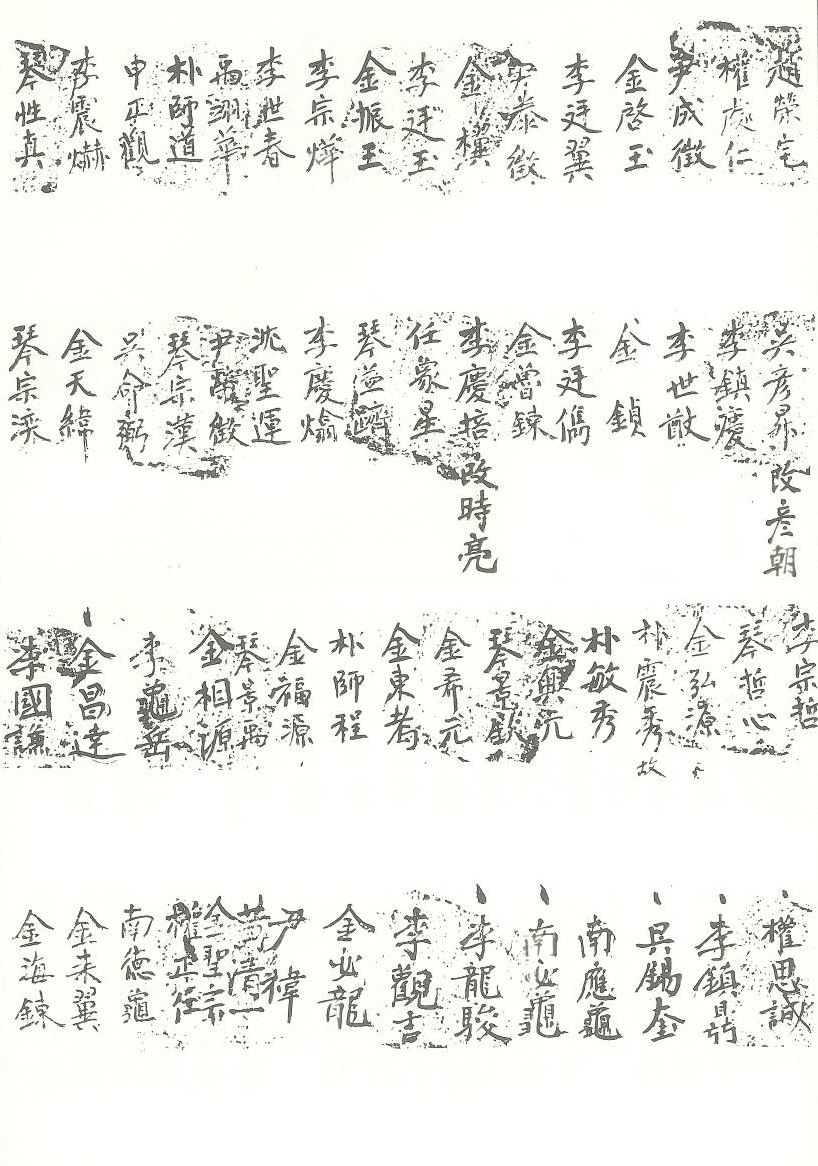 趙榮宅
權處仁
尹成徵
金啓玉
李廷翼
尹泰徵
金樌
李廷玉
金振玉
李宗燁
李世春
禹翊華
朴師道
申正觀
李震爀
琴性真
吳彦昇 改彦朝
李鎭
李世猷
金鎮
李廷儁
金曾鍊
李慶培 改時亮
任象星
琴益躋
李慶
沈聖運
尹 徵
琴宗漢
吳命弼
金天緯
琴宗溪
李宗哲
琴哲心
金弘源
朴震秀 故
朴敏秀
金興元
琴景欽
金希元
金東耇
朴師程
金福源
琴景禹
金相源
李龜岳
金昌達
李國謙
權思誠
李鎭鼎
吳錫奎
南應龜
南必龜
李龍駿
李觀吉
金必龍
尹
黃清一
金聖宗
權正任
南德龜
金未翼
金海鍊